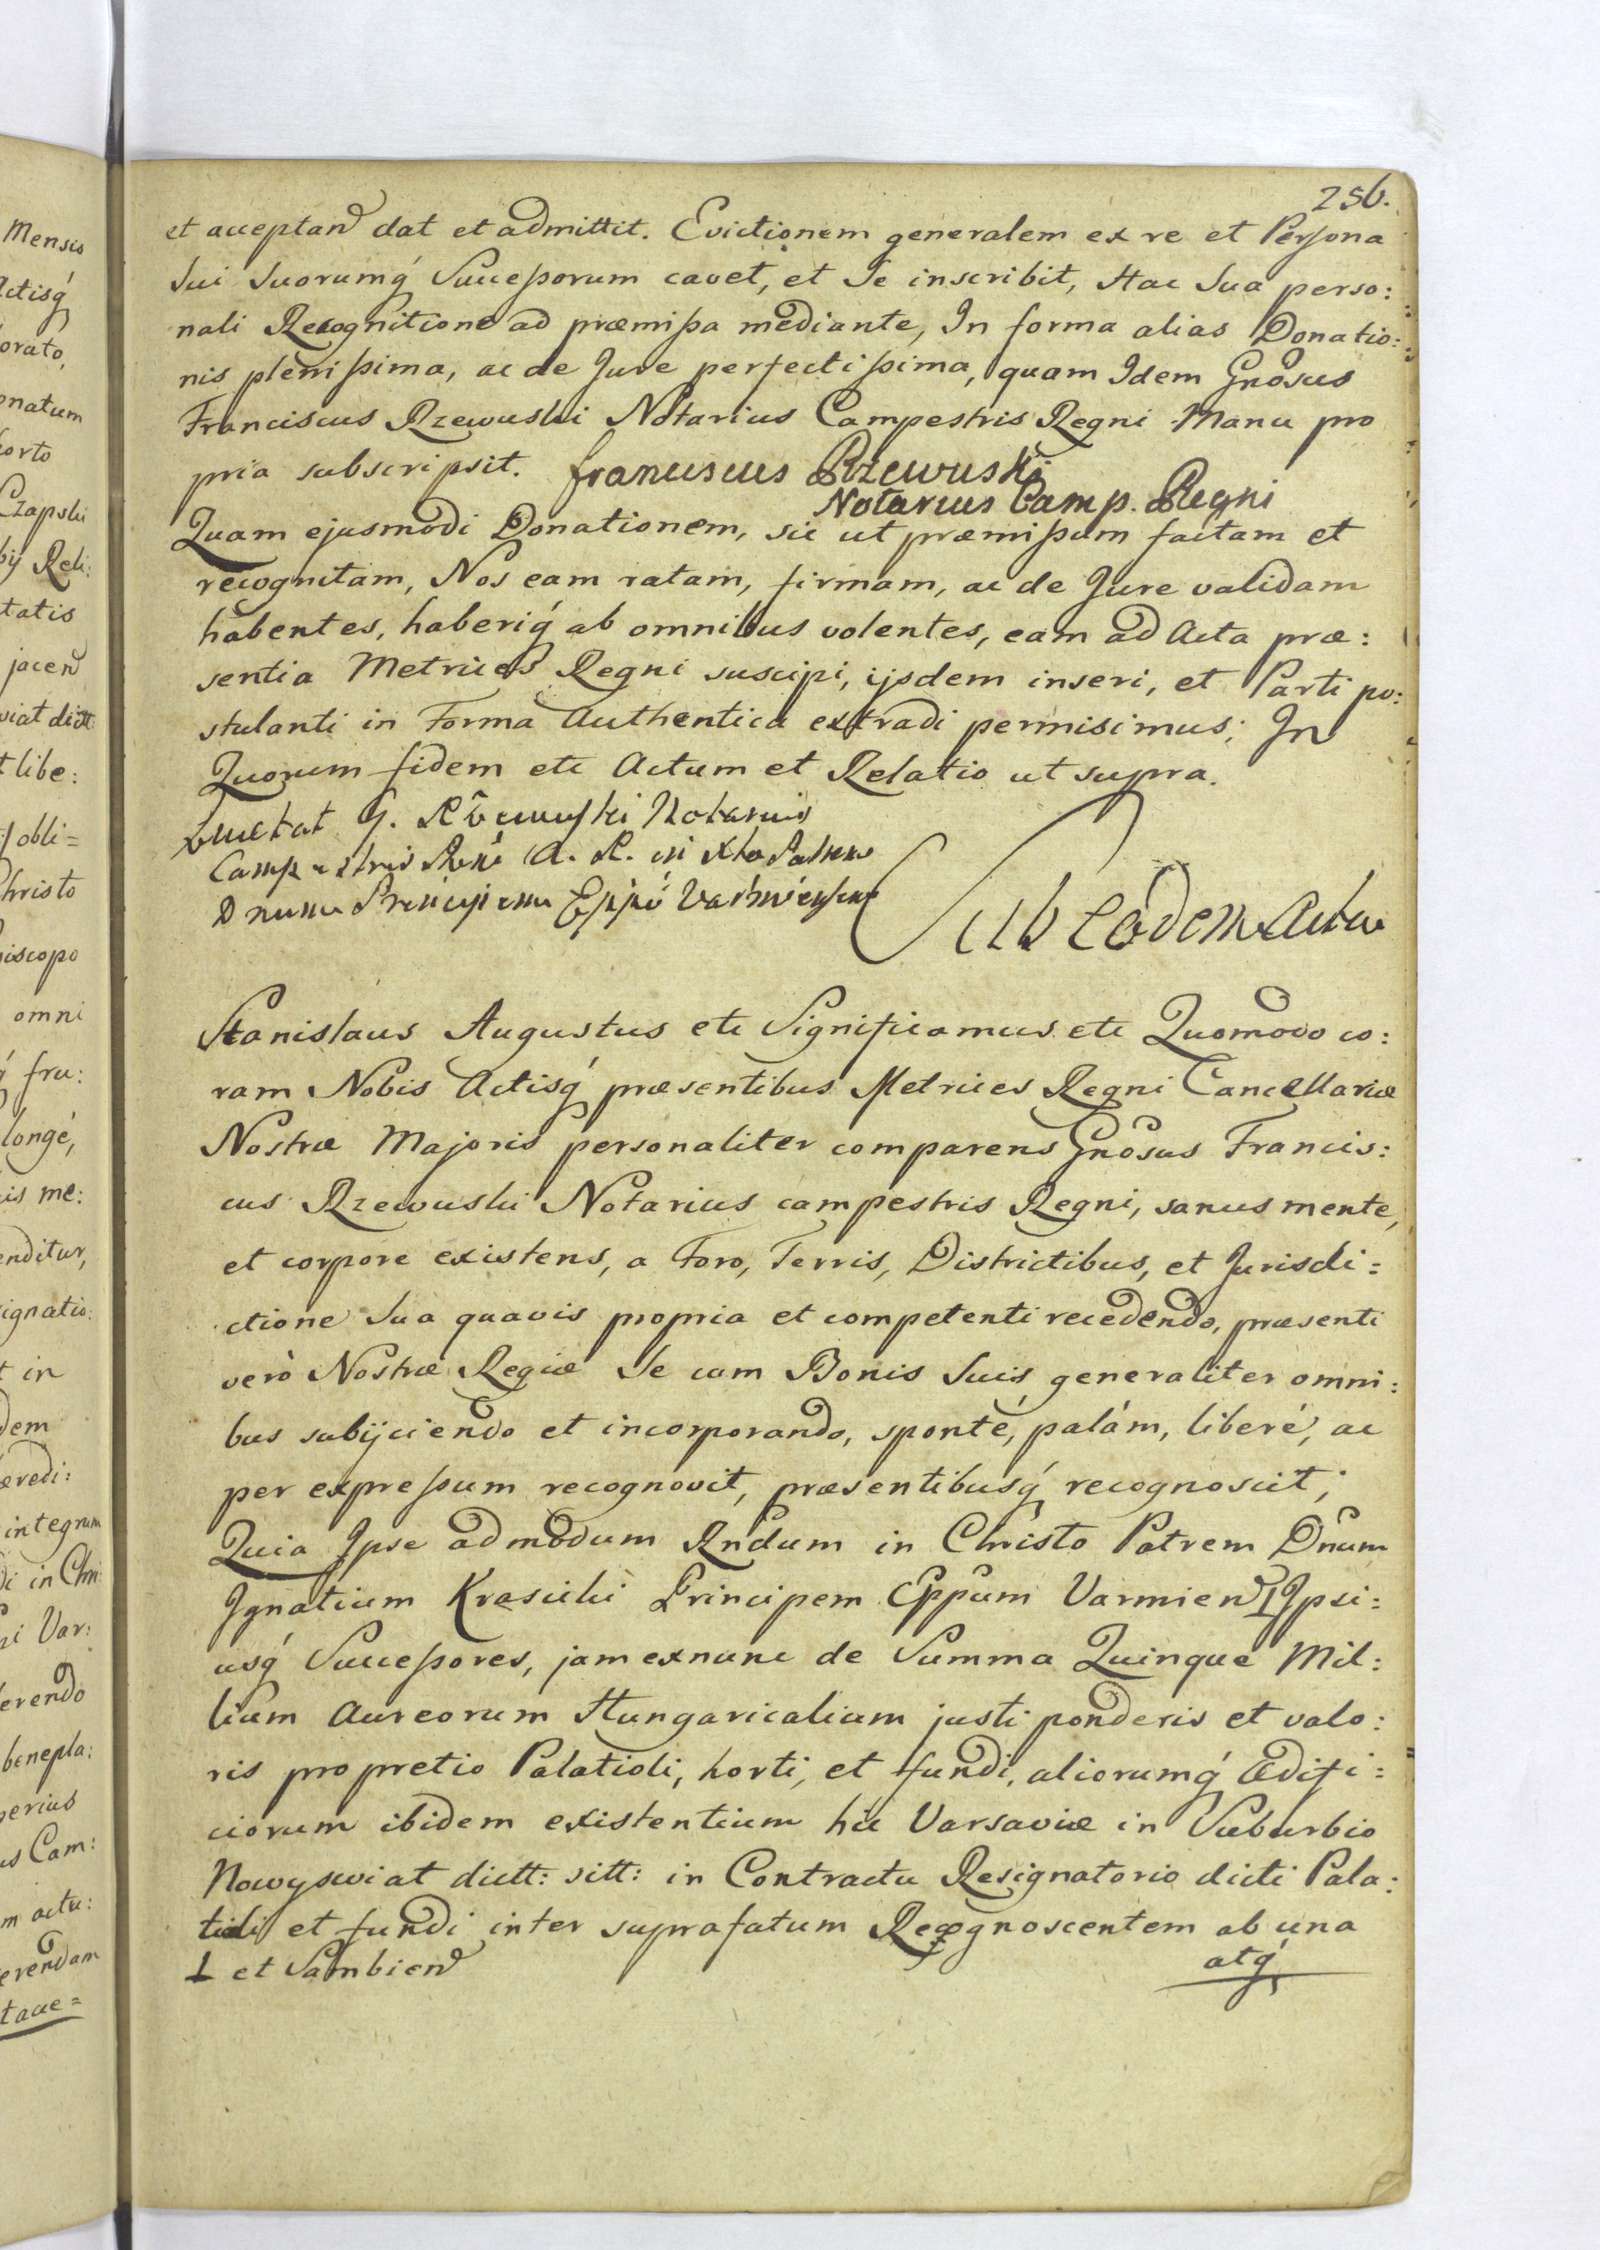 256.
et acceptand dat et admittit. Evictionem generalem ex re et Persona
Sui Suorumq́ Succeßorum cavet, et Se inscribit, Hac Sua perso:
nali Recognitione ad præmißa mediante, In forma alias Donatio:
nis plenißima, ac de Jure perfectißima, quam Idem Gnosus
Franciscus Rzewuski Notarius Campestris Regni Manu pro
pria subscripsit. franciscus Rzewuski
Notarius Camp. Regni
Quam ejusmodi Donationem, sic ut præmißum factam et
recognitam, Nos eam ratam, firmam, ac de Jure validam
habentes, haberiq́ ab omnibus volentes, eam ad Acta præ:
sentia Metrices Regni suscipi, ijsdem inseri, et Parti po:
stulanti in Forma Authentica extradi permisimus; In
Quorum fidem etc Actum et Relatio ut supra.
G. Rzewuski Notarius
Campestris Regni A. R. in Xto Patrem
Dnum Principem Eppu Varmiensem
Sub eodem Actu
Stanislaus Augustus etc Significamus etc Quomodo co:
ram Nobis Actisq́ præsentibus Metrices Regni Cancellariæ
Nostræ Majoris personaliter comparens Gnosus Francis:
cus Rzewuski Notarius campestris Regni, sanus mente,
et corpore existens, a Foro, Terris, Districtibus, et Jurisdi:
ctione Sua quavis propria et competenti recedendo, præsenti
verò Nostræ Regiæ Se cum Bonis Suis generaliter omni:
bus subijciendo et incorporando, sponté, palám, liberé, ac
per expreßum recognovit, præsentibusq́ recognoscit;
Quia Ipse admodum Rndum in Christo Patrem Dnum
Ignatium Krasicki Principem Eppum Varmien ⊥ Ipsi:
usq́ Succeßores, jam exnunc de Summa Quinque Mil:
lium Aureorum Hungaricalium justi ponderis et valo:
ris pro pretio Palatioli, horti, et fundi, aliorumq́ Ædifi:
ciorum ibidem existentium hic Varsaviæ in Suburbio
Nowyswiat dictt: sitt: in Contractu Resignatorio dicti Pala:
tioli et fundi inter suprafatum Recognoscentem ab una
⊥ et Sambien
atq́
Mensis
Actisq́
orato,
onatum
horto
Czapski
bij Reli:
tatis
jacen
viat dictt:
t libe:
obli=
Christo
iscopo
omni
q́ fru:
longé,
is me:
enditur,
signatio:
t in
dem
eredi:
integrum
di in Chri
i Var:
erendo
benepla:
perius
us Cam:
m actu:
erendam
t acce=